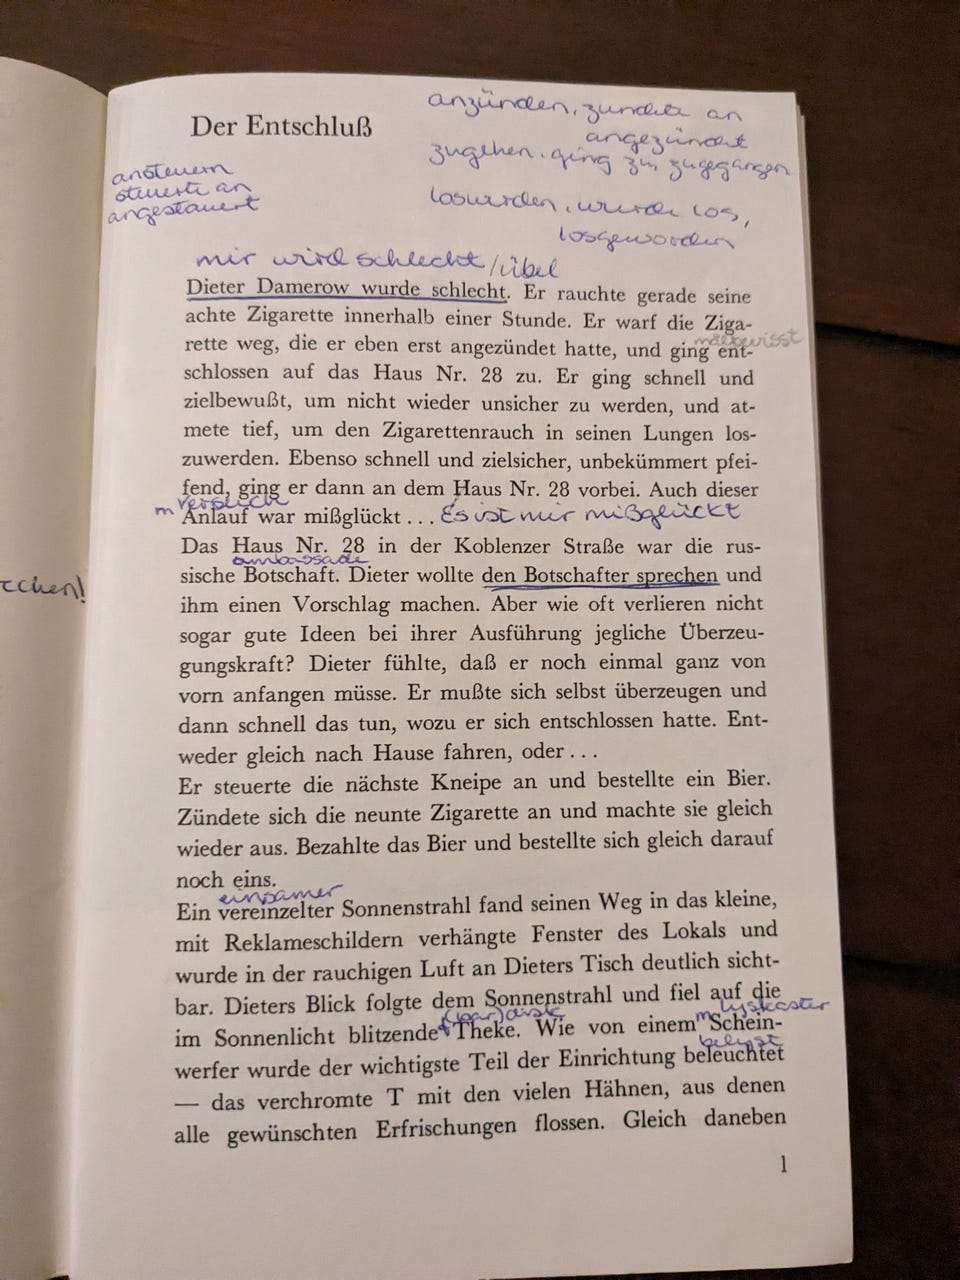 anzünden, zündete an
angezündet
zugehen, ging zu, zugegangen
loswerden, wurde los,
losgeworden
Der Entschluß
ansteuern
steuerte an
angesteuert
mir wird schlecht/übel
Dieter Damerow wurde schlecht. Er rauchte gerade seine
achte Zigarette innerhalb einer Stunde. Er warf die Ziga-
målbevisst
rette weg, die er eben erst angezündet hatte, und ging ent-
schlossen auf das Haus Nr. 28 zu. Er ging schnell und
zielbewußt, um nicht wieder unsicher zu werden, und at-
mete tief, um den Zigarettenrauch in seinen Lungen los-
zuwerden. Ebenso schnell und zielsicher, unbekümmert pfei-
fend, ging er dann an dem Haus Nr. 28 vorbei. Auch dieser
m
Anlauf war mißglückt... Es ist mir mißglückt
Das Haus Nr. 28 in der Koblenzer Straße war die rus-
ambassade
sische Botschaft. Dieter wollte den Botschafter sprechen und
echen!
ihm einen Vorschlag machen. Aber wie oft verlieren nicht
sogar gute Ideen bei ihrer Ausführung jegliche Überzeu-
gungskraft? Dieter fühlte, daß er noch einmal ganz von
vorn anfangen müsse. Er mußte sich selbst überzeugen und
dann schnell das tun, wozu er sich entschlossen hatte. Ent-
weder gleich nach Hause fahren, oder...
Er steuerte die nächste Kneipe an und bestellte ein Bier.
Zündete sich die neunte Zigarette an und machte sie gleich
wieder aus. Bezahlte das Bier und bestellte sich gleich darauf
noch eins.
einsamer
Ein vereinzelter Sonnenstrahl fand seinen Weg in das kleine,
mit Reklameschildern verhängte Fenster des Lokals und
wurde in der rauchigen Luft an Dieters Tisch deutlich sicht-
bar. Dieters Blick folgte dem Sonnenstrahl und fiel auf die
(bar)disk m lyskaster
im Sonnenlicht blitzende Theke. Wie von einem Schein-
belyst
werfer wurde der wichtigste Teil der Einrichtung beleuchtet
— das verchromte T mit den vielen Hähnen, aus denen
alle gewünschten Erfrischungen flossen. Gleich daneben
1